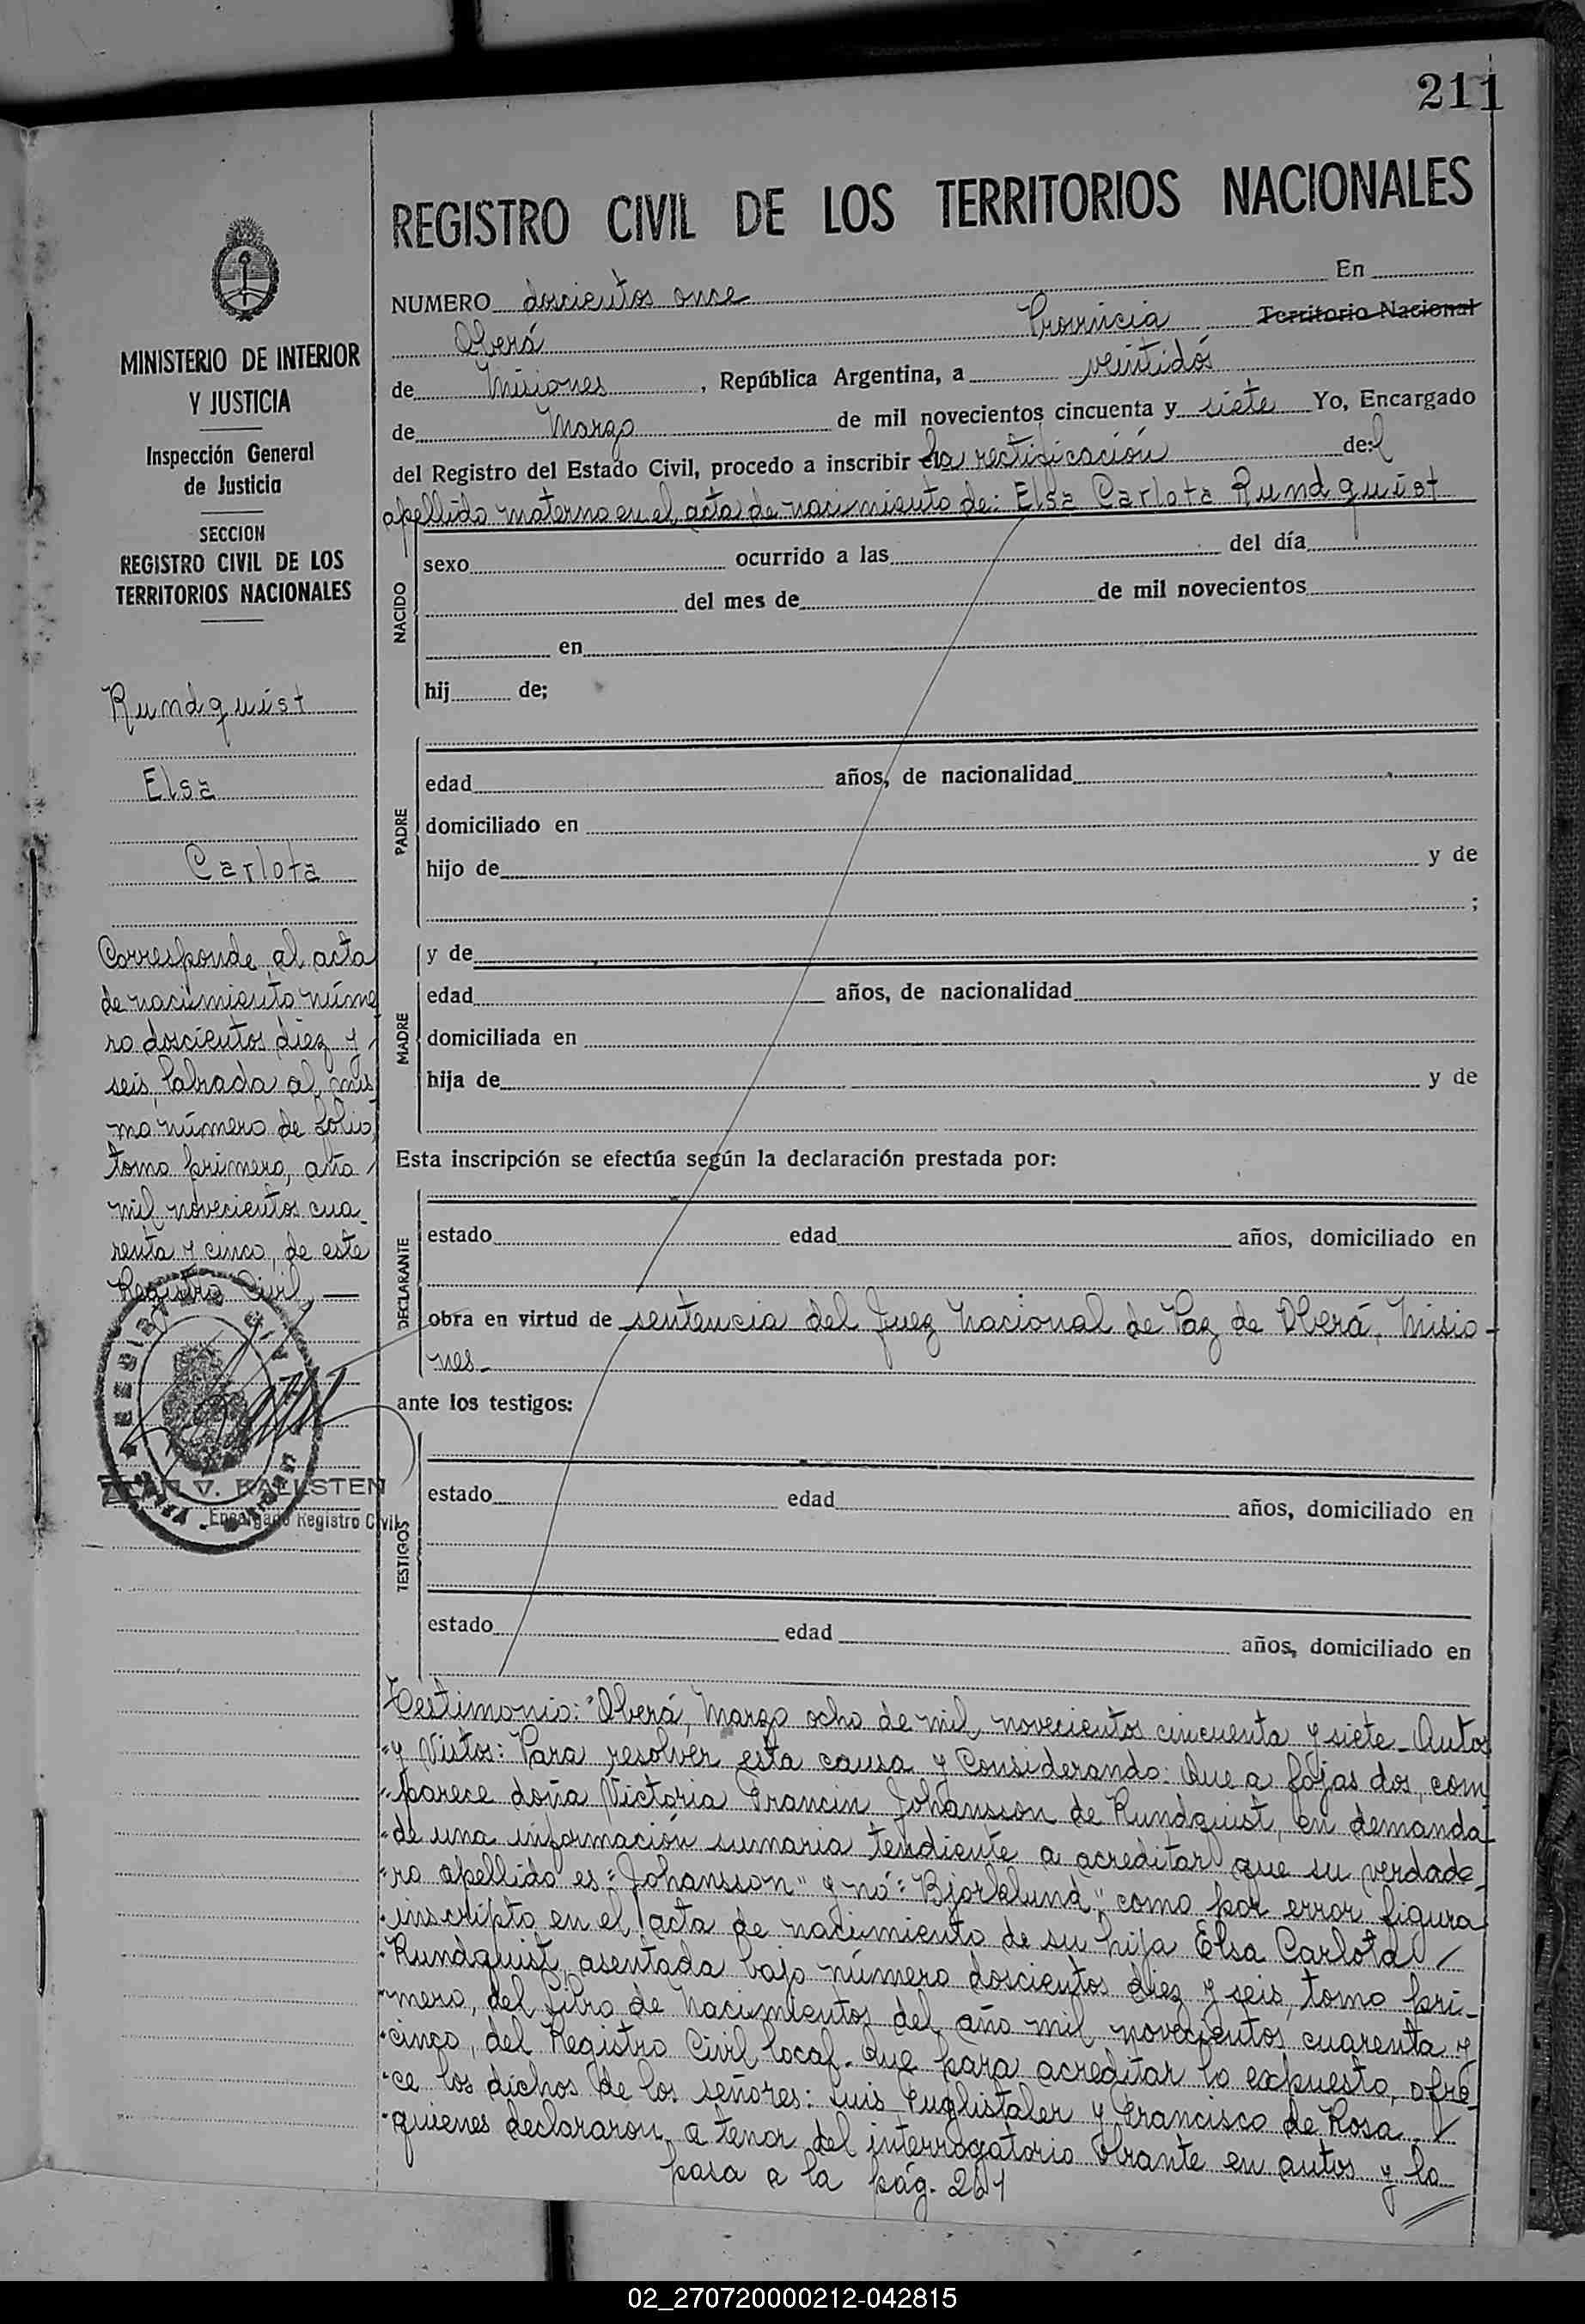 211
REGISTRO CIVIL DE LOS TERRITORIOS NACIONALES
MINISTERIO DE INTERIOR
Y JUSTICIA
Inspección General
de Justicia
SECCION
REGISTRO CIVIL DE LOS
TERRITORIOS NACIONALES
Rundquist
Elsa
Carlota
Corresponde al acta
de nacimiento núme
ro doscientos diez y
seis, labrada al mis
mo número de folio,
tomo primero, año
mil novecientos cua_
renta y cinco, de este
Registro Civil. —
REGISTRO CIVIL
V. KALLSTEN
Encargado Registro Civil
NUMERO doscientos once En
Oberá Provincia Territorio Nacional
de Misiones, República Argentina, a veintidós
de Marzo de mil novecientos cincuenta y siete Yo, Encargado
del Registro del Estado Civil, procedo a inscribir la rectificación del
apellido materno en el acta de nacimiento de: Elsa Carlota Rundquist
NACIDO
sexo ocurrido a las del día
del mes de de mil novecientos
en
hij de;
PADRE
edad años, de nacionalidad
domiciliado en
hijo de y de
;
MADRE
y de
edad años, de nacionalidad
domiciliada en
hija de y de
Esta inscripción se efectúa según la declaración prestada por:
DECLARANTE
estado edad años, domiciliado en
obra en virtud de sentencia del Juez Nacional de Paz de Oberá, Misio-
nes-
ante los testigos:
TESTIGOS
estado edad años, domiciliado en
estado edad años, domiciliado en
Testimonio: "Oberá, Marzo ocho de mil novecientos cincuenta y siete_ Autos
"y Vistos: Para resolver esta causa y Considerando: Que a fojas dos, com
"parece doña Victoria Francin Johansson de Rundquist, en demanda
"de una información sumaria tendiente a acreditar que su verdade_
"ro apellido es "Johansson" y no "Bjorklund", como por error figura
"inscripto en el acta de nacimiento de su hija Elsa Carlota /
"Rundquist, asentada bajo número doscientos diez y seis, tomo pri_
"mero, del libro de Nacimientos del año mil novecientos cuarenta y
"cinco, del Registro Civil local. Que para acreditar lo expuesto, ofre_
"ce los dichos de los señores: Luis Englistaler y Francisco de Rosa /
"quienes declararon a tenor del interrogatorio obrante en autos y la
pasa a la pág. 261
02_270720000212-042815